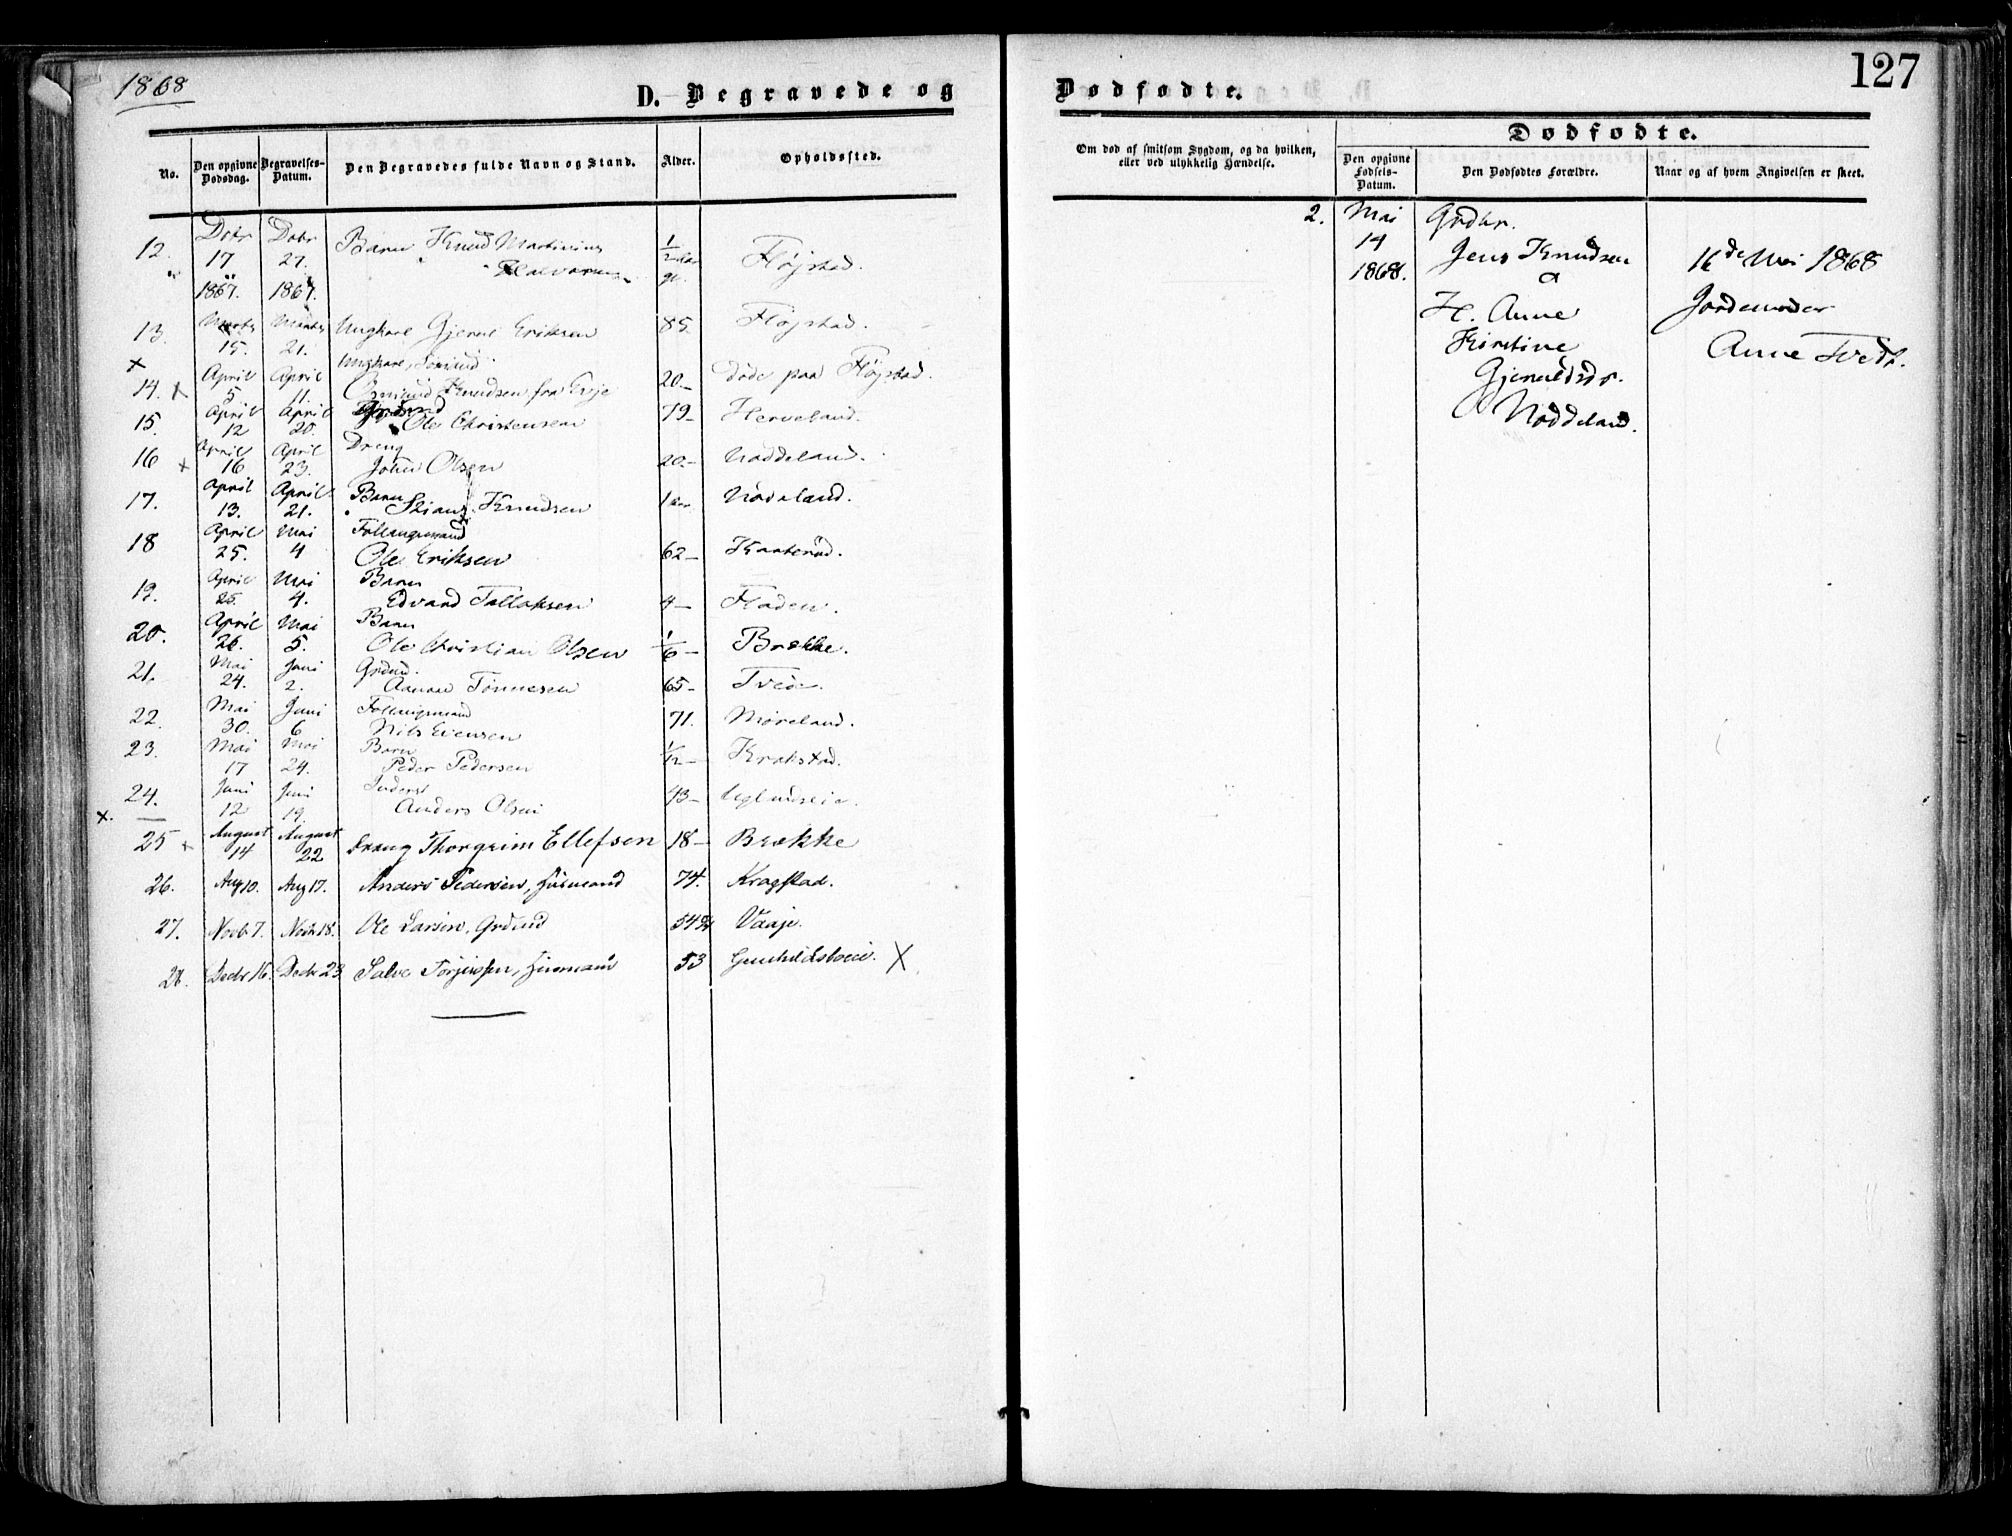 1868
D. Begravede og
No.
Den opgivne Dødsdag.
Begravelses-Datum.
Den Begravedes fulde Navn og Stand.
Alder.
Opholdssted.
12. Dcbr 17 1867. Dcbr 27. 1867. Barn Knud Martinius Halvorsen 1/2 Aar gl. Højstad.
13. Marts 15. Marts 21. Ungkarl Gjerul Eriksen 85. Højstad.
x
14. x April 5 April 11. Ungkarl, Knudsen fra 20- døde paa Højstad.
15. April 12 April 20. Ole Christensen 79- Herveland.
16 x April 16 April 23. Dreng John Olsen 20.- Noddeland.
17. April 13. April 21. Barn Knudsen 1 Aar Nodeland.
18 April 25. Mai 4 Føllaugsmand Ole Eriksen 62-
19. April 25. Mai 4. Barn Edvard Tallaksen 4-
20. April 26. Mai 5. Barn Ole Christian Olsen 1/6- Brække.
21. Mai 24. Juni 2. Grdmd. Aanon Tønnesen 65- Tvede.
22. Mai 30. Juni 6 Føllaugsmand Nils Evensen 71. Moreland.
23. Mai 17 Mai 24. Barn Peder Pedersen 1/12- Krokstad.
24. Juni 12 Juni 19. Inderst Anders Olsen 43-
x.
25 x August 14 August 22 Dreng Thorgrim Ellefsen 18- Brække
26. Aug 10. Aug 17. Anders Pedersen, Husmand 74. Kragstad.
27. Novb 7. Novb 18. Ole Larsen, Grdmd 54 Vaaje.
28. Decbr 16. Decbr 23 Salve Torjussen, Husmand 53 X
127
Dødfødte.
Om død af smitsom Sygdom, og da hvilken,
eller ved ulykkelig Hændelse.
Dødfødte.
Den opgivne Fødsels-Datum.
Den Dødfødtes Forældre.
Naar og af hvem Angivelsen er skeet.
2. Mai 14 1868. Grdbr.
Jens Knudsen
H. Anne
Kirstine
Gjeruldsdr.
Noddeland.
16de Mai 1868
Jordemoder
Anne Tvedt.